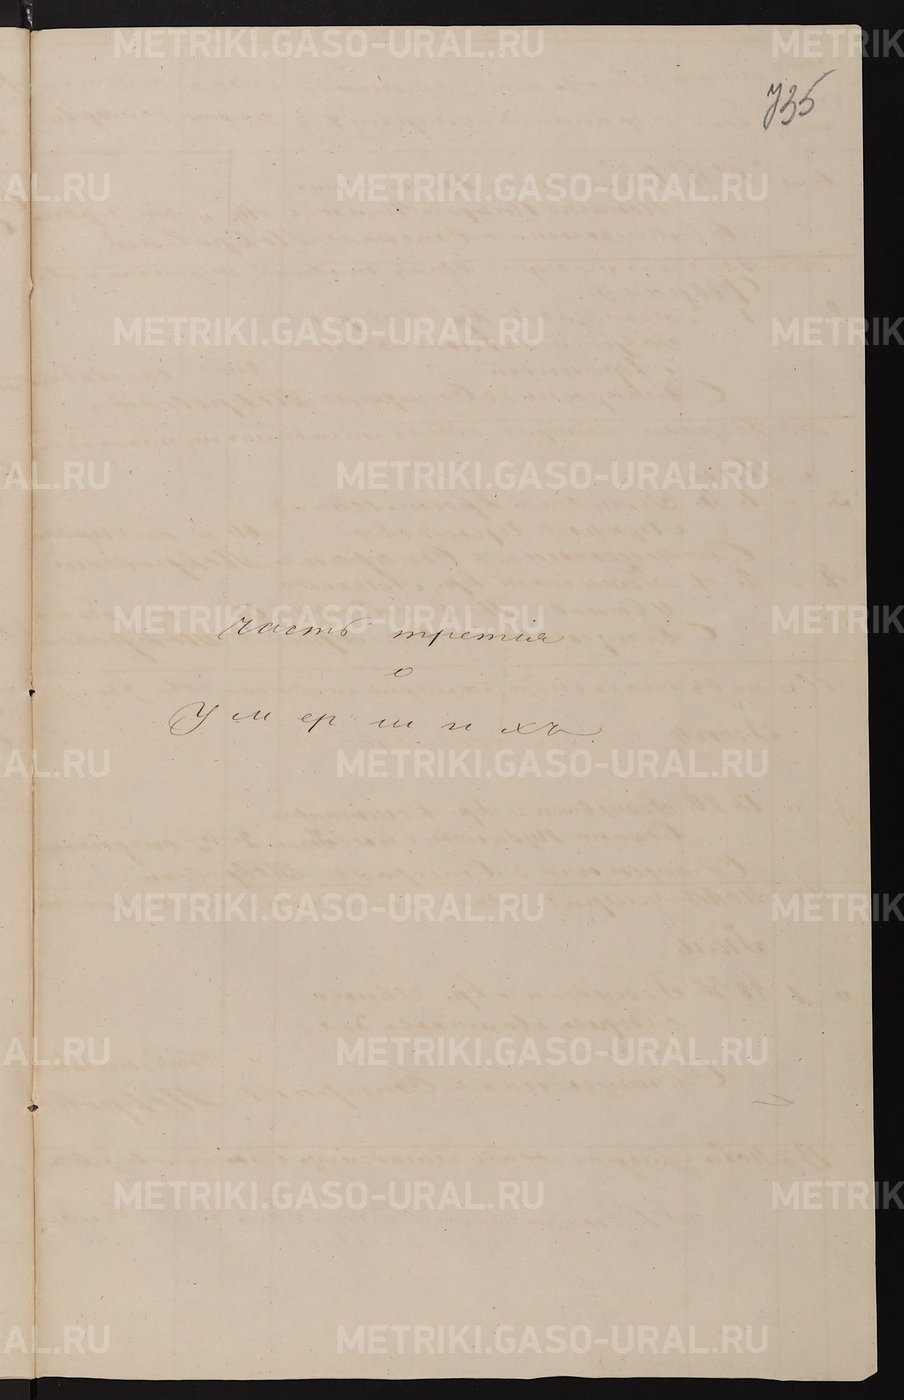 735
часть третія
о
Умершихъ
METRIKI.GASO-URAL.RU